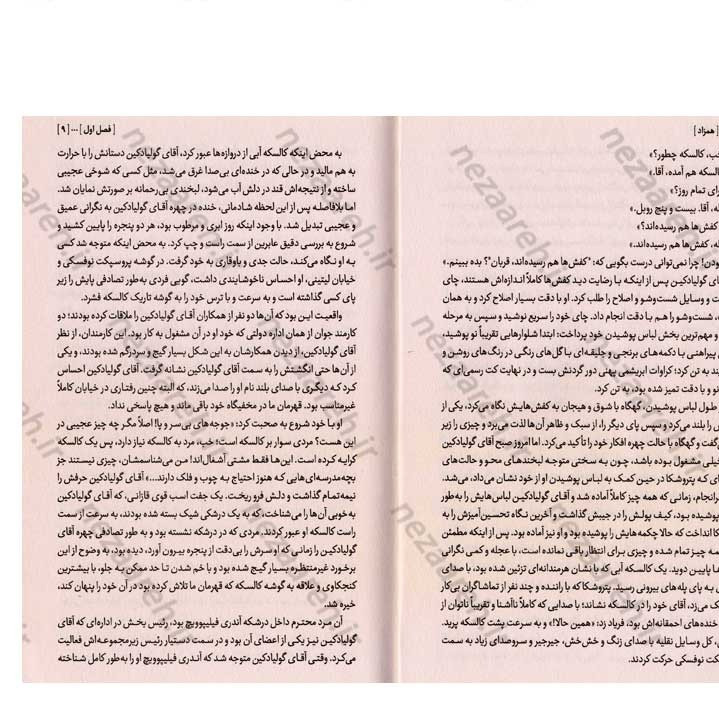 [ همزاد ]
کالسکه چطور؟»
کالسکه هم آمده، آقا.»
تمام روز؟»
آقا. بیست و پنج روبل.»
کفش‌ها هم رسیده‌اند؟»
کفش‌ها هم رسیده‌اند.»
چرا نمی‌توانی درست بگویی که: "کفش‌ها هم رسیده‌اند، قربان"؟ بده ببینم.»
گولیادکین پس از اینکه با رضایت دید کفش‌ها کاملاً اندازه‌اش هستند، چای
و وسایل شست‌وشو و اصلاح را طلب کرد. او با دقت بسیار اصلاح کرد و به همان
شست‌وشو را هم با دقت انجام داد. چای خود را سریع نوشید و سپس به مرحله
و مهم‌ترین بخش لباس پوشیدن خود پرداخت: ابتدا شلوارهایی تقریباً نو پوشید،
پیراهنی با دکمه‌های برنجی و جلیقه‌ای با گل‌های رنگی در رنگ‌های روشن و
به تن کرد؛ کراوات ابریشمی پهنی دور گردنش بست و در نهایت کت رسمی‌ای که
نو و با دقت تمیز شده بود، به تن کرد.
طول لباس پوشیدن، گهگاه با شوق و هیجان به کفش‌هایش نگاه می‌کرد، یکی از
را بلند می‌کرد و سپس پای دیگر را، از سبک و ظاهر آن‌ها لذت می‌برد و چیزی را زیر
و گهگاه با حالت چهره افکار خود را تأکید می‌کرد. اما امروز صبح آقای گولیادکین
خیلی مشغول بوده باشد، چون به سختی متوجه لبخندهای محو و حالت‌های
که پتروشکا در حین کمک به لباس پوشیدن او از خود نشان می‌داد، می‌شد.
سرانجام، زمانی که همه چیز کاملاً آماده شد و آقای گولیادکین لباس‌هایش را به‌طور
پوشیده بود، کیف پولش را در جیبش گذاشت و آخرین نگاه تحسین‌آمیزش را به
انداخت که حالا چکمه‌هایش را پوشیده بود و او نیز آماده بود. پس از اینکه مطمئن
چیز تمام شده و چیزی برای انتظار باقی نمانده است، با عجله و کمی نگرانی
پایین دوید. یک کالسکه آبی که با نشان هنرمندانه‌ای تزئین شده بود، با صدای
به پای پله‌های بیرونی رسید. پتروشکا که با راننده و چند نفر از تماشاگران بی‌کار
می‌زد، آقای خود را در کالسکه نشاند؛ با صدایی که کاملاً ناآشنا و تقریباً ناتوان از
خنده‌های احمقانه‌اش بود، فریاد زد: «همین حالا!» و به سرعت پشت کالسکه پرید.
کل وسایل نقلیه با صدای زنگ و خش‌خش، جیرجیر و سروصدای زیاد به سمت
نوفسکی حرکت کردند.
[ فصل اول ] ••• [ ۹ ]
به محض اینکه کالسکه آبی از دروازه‌ها عبور کرد، آقای گولیادکین دستانش را با حرارت
به هم مالید و در حالی که در خنده‌ای بی‌صدا غرق می‌شد، مثل کسی که شوخی عجیبی
ساخته و از نتیجه‌اش قند در دلش آب می‌شود، لبخندی بی‌رحمانه بر صورتش نمایان شد.
اما بلافاصله پس از این لحظه شادمانی، خنده در چهره آقای گولیادکین به نگرانی عمیق
و عجیبی تبدیل شد. با وجود اینکه روز ابری و مرطوب بود، هر دو پنجره را پایین کشید و
شروع به بررسی دقیق عابرین از سمت راست و چپ کرد. به محض اینکه متوجه شد کسی
به او نگاه می‌کند، حالت جدی و باوقاری به خود گرفت. در گوشه پروسپکت نوفسکی و
خیابان لیتینی، او احساس ناخوشایندی داشت، گویی فردی به‌طور تصادفی پایش را زیر
پای کسی گذاشته است و به سرعت و با ترس خود را به گوشه تاریک کالسکه فشرد.
واقعیت این بود که آن‌ها دو نفر از همکاران آقای گولیادکین را ملاقات کرده بودند؛ دو
کارمند جوان از همان اداره دولتی که خود او در آن مشغول به کار بود. این کارمندان، از نظر
آقای گولیادکین، از دیدن همکارشان به این شکل بسیار گیج و سردرگم شده بودند، و یکی
از آن‌ها حتی انگشتش را به سمت آقای گولیادکین نشانه گرفت. آقای گولیادکین احساس
کرد که دیگری با صدای بلند نام او را صدا می‌زند، که البته چنین رفتاری در خیابان کاملاً
غیرمناسب بود. قهرمان ما در مخفیگاه خود باقی ماند و هیچ پاسخی نداد.
او با خود شروع به صحبت کرد: «جوجه‌های بی‌سر و پا! اصلاً مگر چه چیز عجیبی در
این هست؟ مردی سوار بر کالسکه است؛ خب، مرد به کالسکه نیاز دارد، پس یک کالسکه
کرایه کرده است. این‌ها فقط مشتی آشغال‌اند! من می‌شناسمشان، چیزی نیستند جز
بچه‌مدرسه‌ای‌هایی که هنوز احتیاج به چوب و فلک دارند...» آقای گولیادکین حرفش را
نیمه‌تمام گذاشت و دلش فرو ریخت. یک جفت اسب قوی قازانی، که آقای گولیادکین
به‌خوبی آن‌ها را می‌شناخت، که به یک درشکی شیک بسته شده بودند، به سرعت از سمت
راست کالسکه او عبور کردند. مردی که در درشکه نشسته بود و به طور تصادفی چهره آقای
گولیادکین را زمانی که او سرش را بی‌دقت از پنجره بیرون آورد، دیده بود، به وضوح از این
برخورد غیرمنتظره بسیار گیج شده بود و با خم شدن تا حد ممکن به جلو، با بیشترین
کنجکاوی و علاقه به گوشه کالسکه که قهرمان ما تلاش کرده بود در آن خود را پنهان کند،
خیره شد.
آن مرد محترم داخل درشکه آندری فیلیپوویچ بود، رئیس بخش در اداره‌ای که آقای
گولیادکین نیز یکی از اعضای آن بود و در سمت دستیار رئیس زیرمجموعه‌اش فعالیت
می‌کرد. وقتی آقای گولیادکین متوجه شد که آندری فیلیپوویچ او را به‌طور کامل شناخته
nezaareh.ir
nezaareh.ir
nezaareh.ir
nezaareh.ir
nezaareh.ir
nezaareh.ir